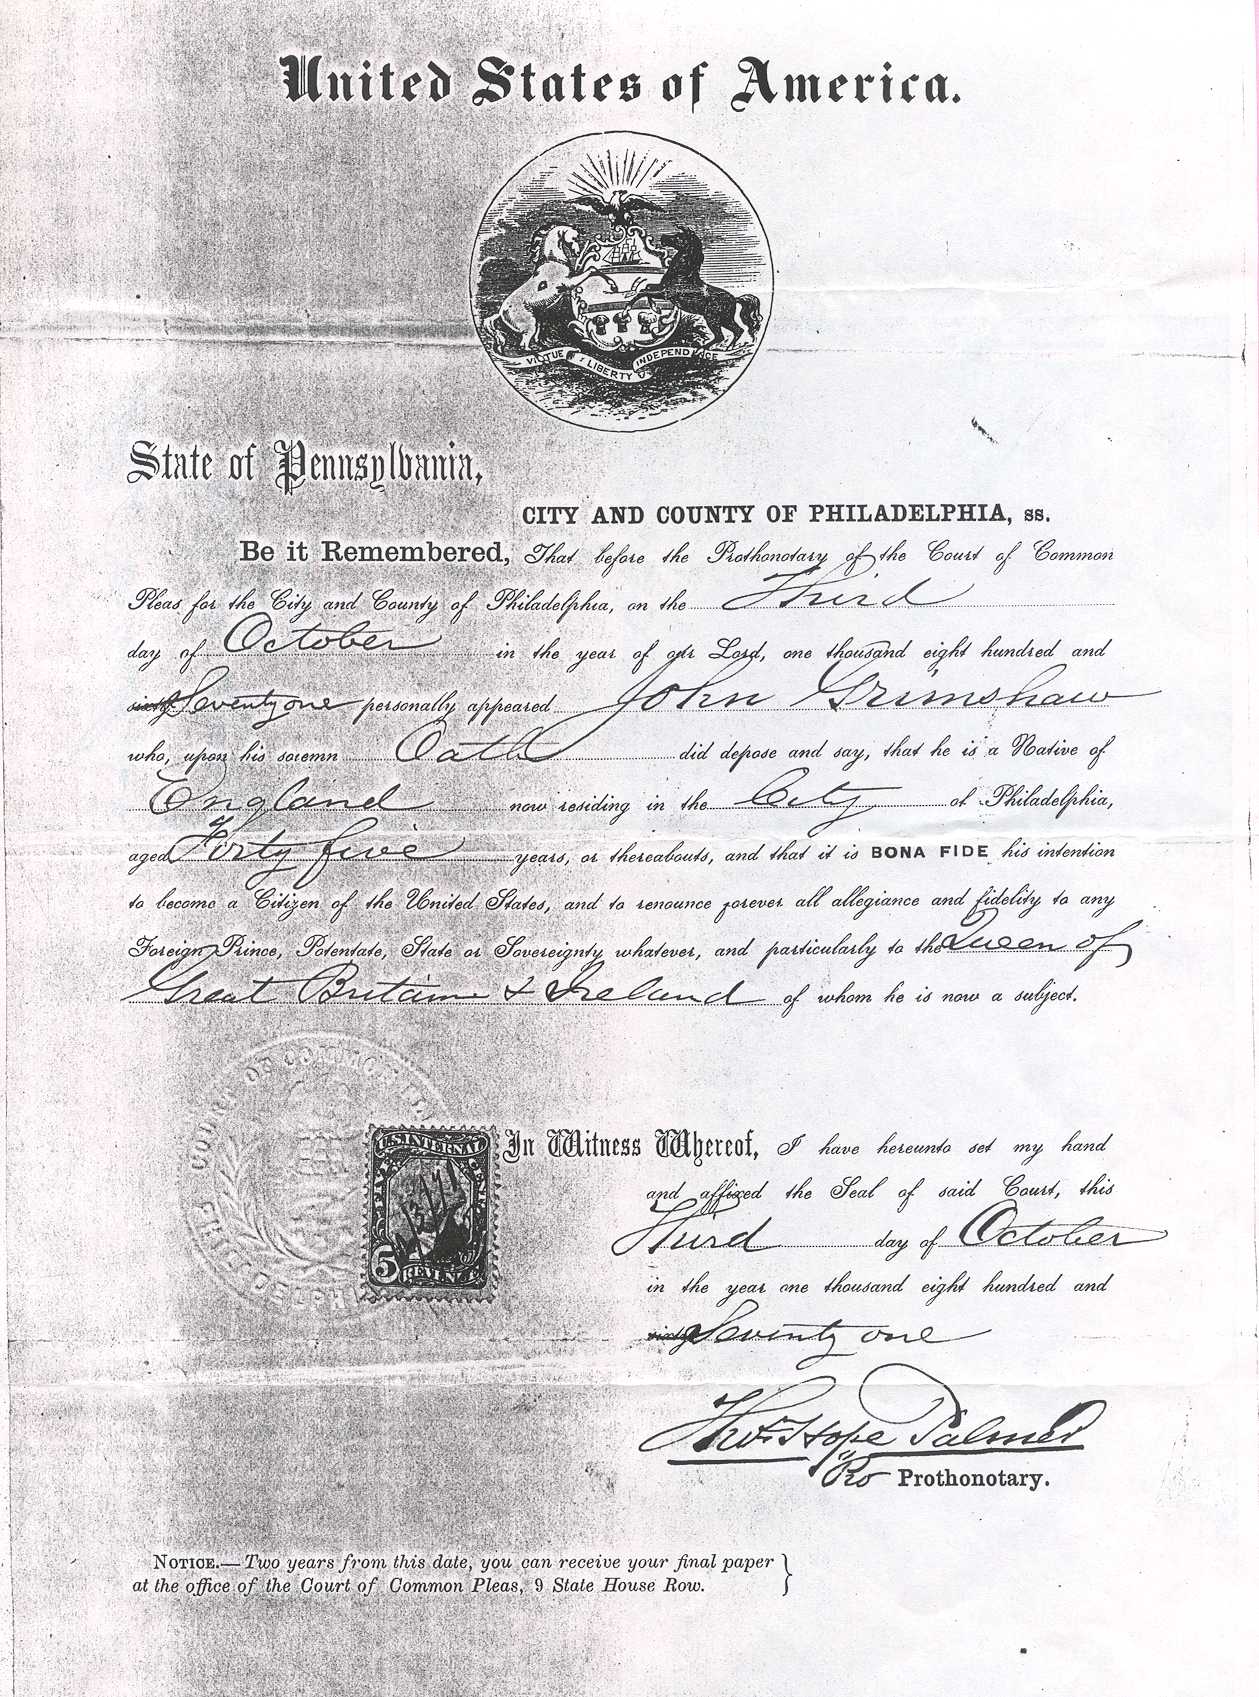 United States of America.
VIRTUE LIBERTY INDEPENDENCE
State of Pennsylvania,
CITY AND COUNTY OF PHILADELPHIA, ss.
Be it Remembered, That before the Prothonotary of the Court of Common
Pleas for the City and County of Philadelphia, on the Third
day of October in the year of our Lord, one thousand eight hundred and
sixty Seventy one personally appeared John Grimshaw
who, upon his solemn Oath did depose and say, that he is a Native of
England now residing in the City of Philadelphia,
aged Forty five years, or thereabouts, and that it is BONA FIDE his intention
to become a Citizen of the United States, and to renounce forever all allegiance and fidelity to any
Foreign Prince, Potentate, State or Sovereignty whatever, and particularly to the Queen of
Great Britain & Ireland of whom he is now a subject.
COURT OF COMMON
PHILADELPHIA
U.S. INTERNAL
FIVE CENTS
5 REVENUE
In Witness Whereof, I have hereunto set my hand
and affixed the Seal of said Court, this
Third day of October
in the year one thousand eight hundred and
sixty Seventy one
Hope Palmer
Pro Prothonotary.
NOTICE.—Two years from this date, you can receive your final paper
at the office of the Court of Common Pleas, 9 State House Row.